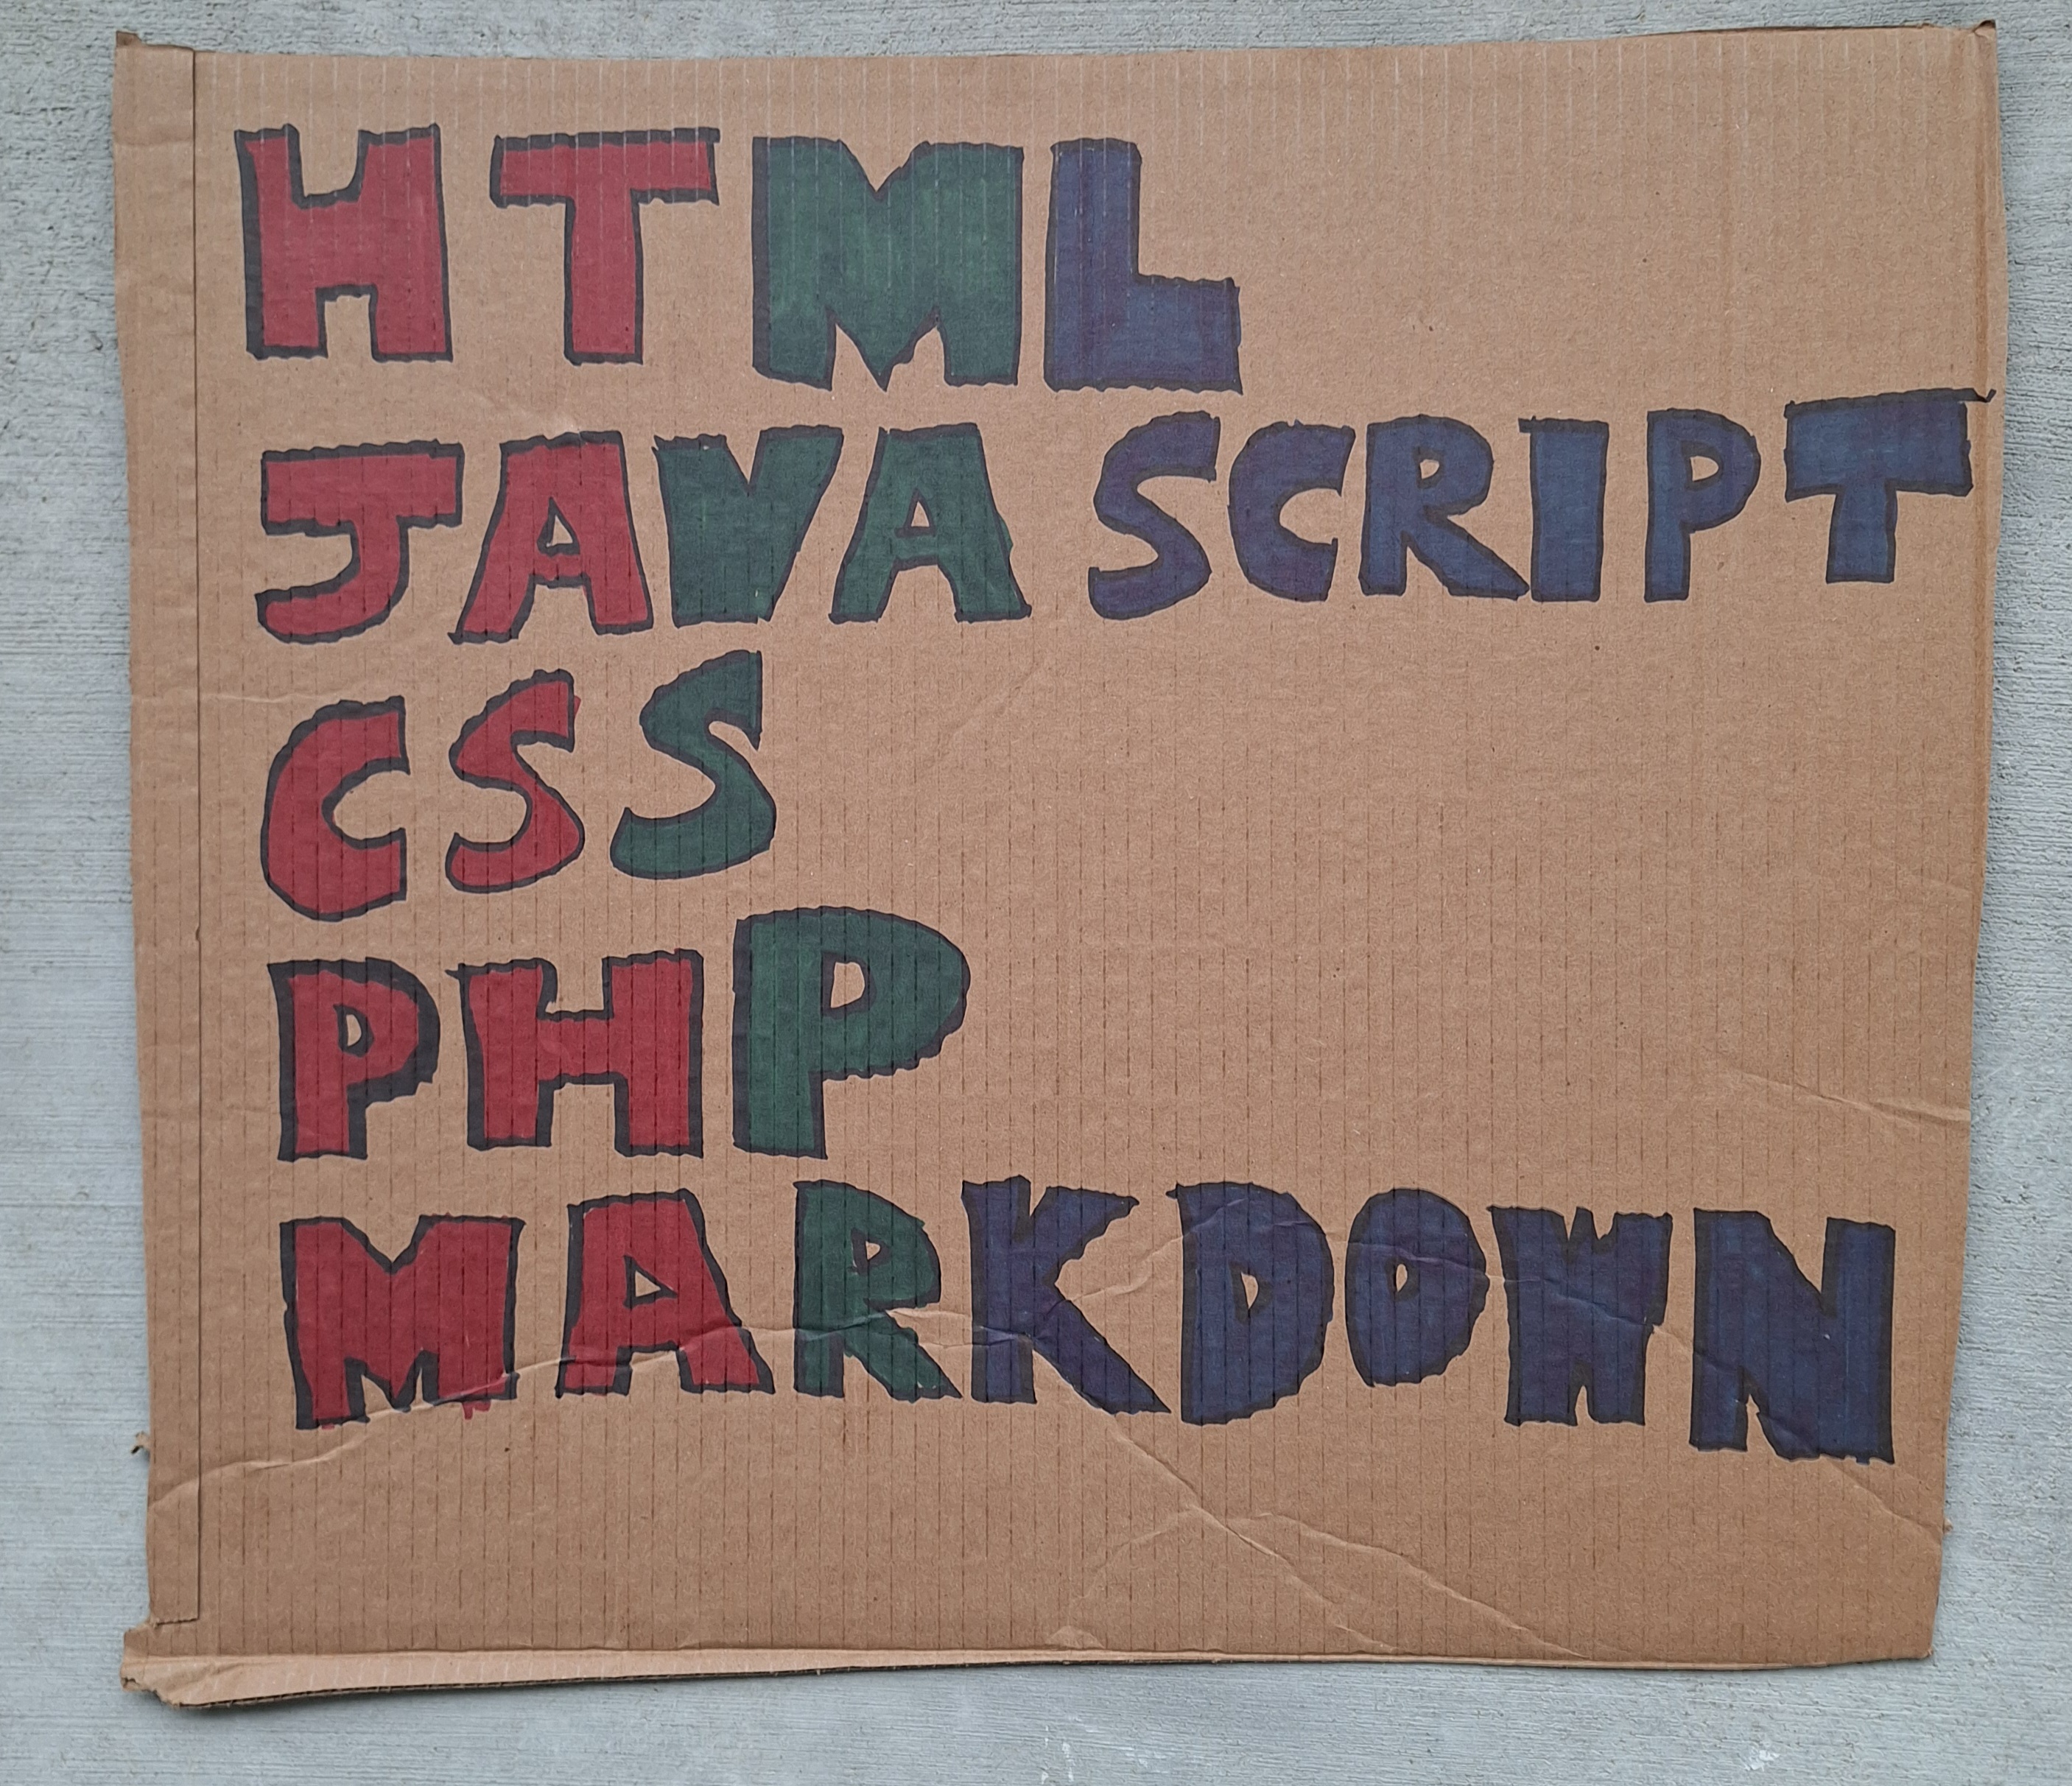 HTML
JAVA SCRIPT
CSS
PHP
MARKDOWN